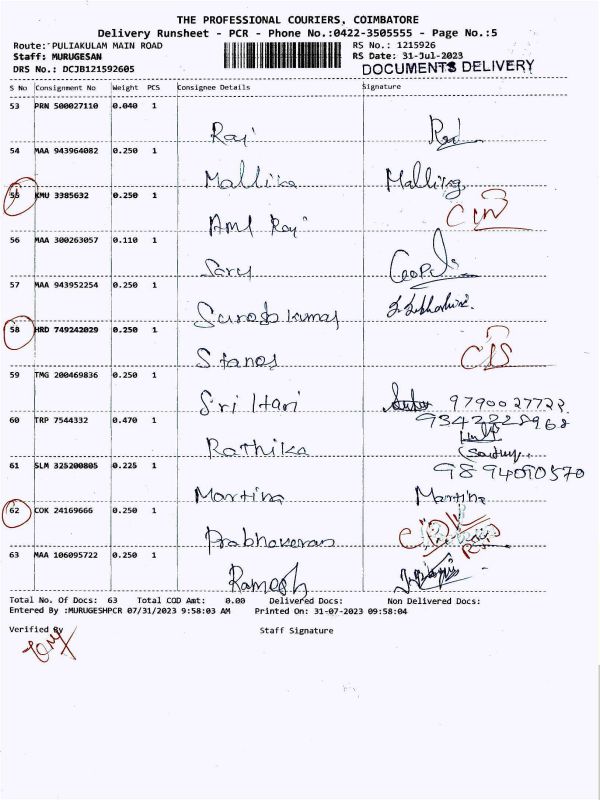 THE PROFESSIONAL COURIERS, COIMBATORE
Delivery Runsheet - PCR - Phone No.:0422-3505555 - Page No.:5
Route: PULIAKULAM MAIN ROAD RS No.: 1215926
Staff: MURUGESAN RS Date: 31-Jul-2023
DRS No.: DCJB121592605 DOCUMENTS DELIVERY
S No Consignment No Weight PCS Consignee Details Signature
53 PRN 500027110 0.040 1
Raj
54 MAA 943964082 0.250 1
Mallika
55 KMU 3385632 0.250 1
Aml Raj
56 MAA 300263057 0.110 1
Saru
57 MAA 943952254 0.250 1
Suresh kumar
58 HRD 749242029 0.250 1
Stanes
59 TMG 200469836 0.250 1
Sri Hari 9790027722
60 TRP 7544332 0.470 1 9342228968
Rathika
61 SLM 325200805 0.225 1 9894090570
Martina Martina
62 COK 24169666 0.250 1
Prabhakaran
63 MAA 106095722 0.250 1
Ramesh
Total No. Of Docs: 63 Total COD Amt: 0.00 Delivered Docs: Non Delivered Docs:
Entered By :MURUGESHPCR 07/31/2023 9:58:03 AM Printed On: 31-07-2023 09:58:04
Verified By Staff Signature